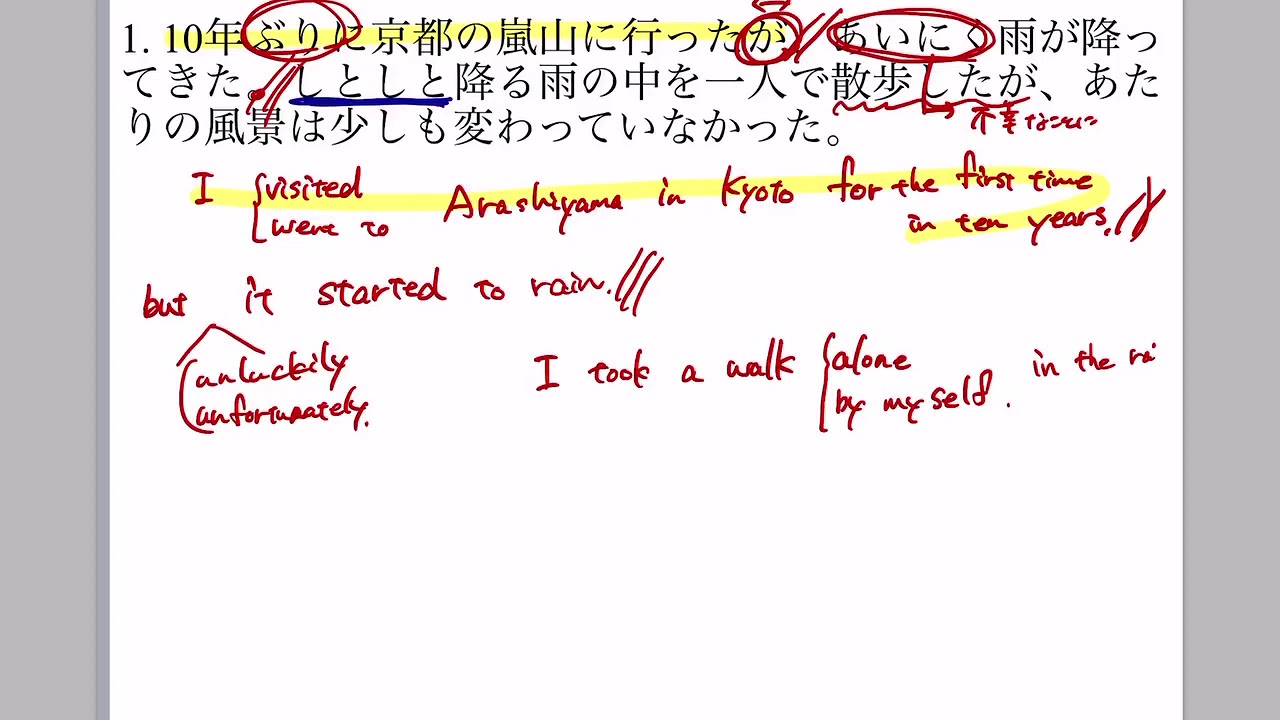 1. 10年ぶりに京都の嵐山に行ったが、あいにく雨が降っ
てきた。しとしと降る雨の中を一人で散歩したが、あた
りの風景は少しも変わっていなかった。
不幸なことに
I visited Arashiyama in Kyoto for the first time
went to in ten years.
but it started to rain.
unluckily I took a walk alone in the rai
unfortunately. by myself.